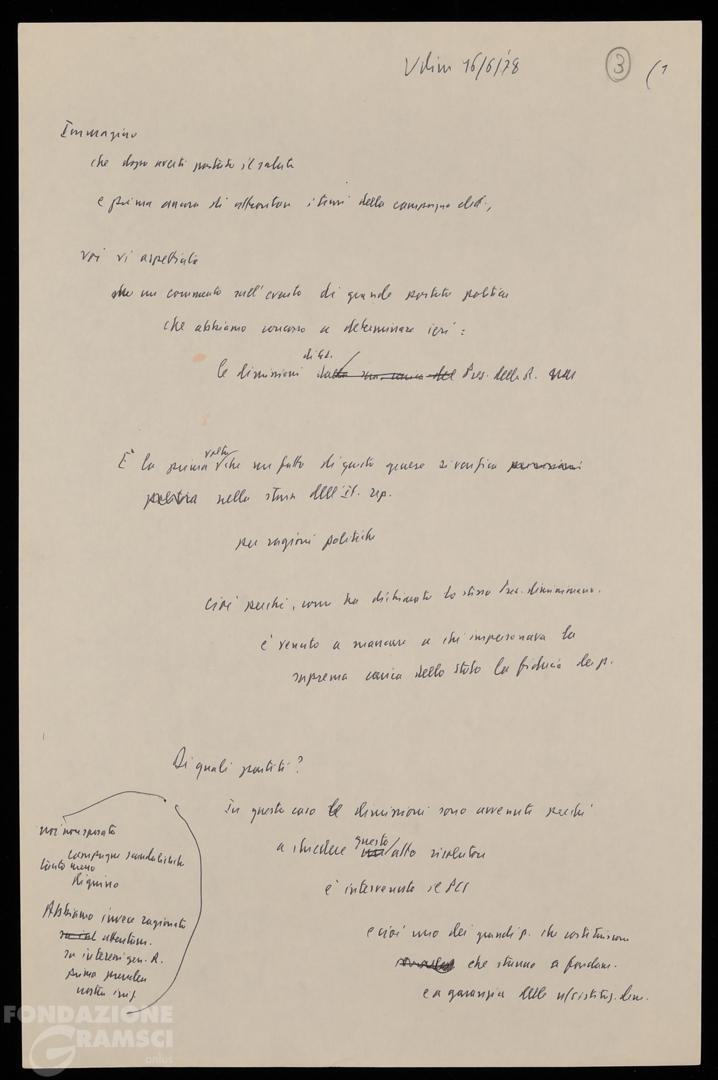 Udine 16/6/78
3 (1
Immagino
che dopo avervi portato il saluto
e prima ancora di affrontare i temi della campagna elett.,
voi vi aspettiate
un commento sull'evento di grande portata politica
che abbiamo concorso a determinare ieri:
le dimissioni di G.L. Pres. della R.
È la prima volta che un fatto di questo genere si verifica
nella storia dell'It. rep.
per ragioni politiche
Cioè perché, come ha dichiarato lo stesso Pres. dimissionario.
è venuto a mancare a chi impersonava la
suprema carica dello Stato la fiducia dei p.
Di quali partiti?
In questo caso le dimissioni sono avvenute perché
a chiedere questo atto risolutore
è intervenuto il PCI
e cioè uno dei grandi p. che costituiscono
che stanno a fondam.
e a garanzia delle n/ istituz. dem.
noi non sposato
campagne scandalistiche
tanto meno
Abbiamo invece ragionato
attentam.
su interessi gen. R.
prima prendere
nostra iniz.
FONDAZIONE
GRAMSCI
onlus